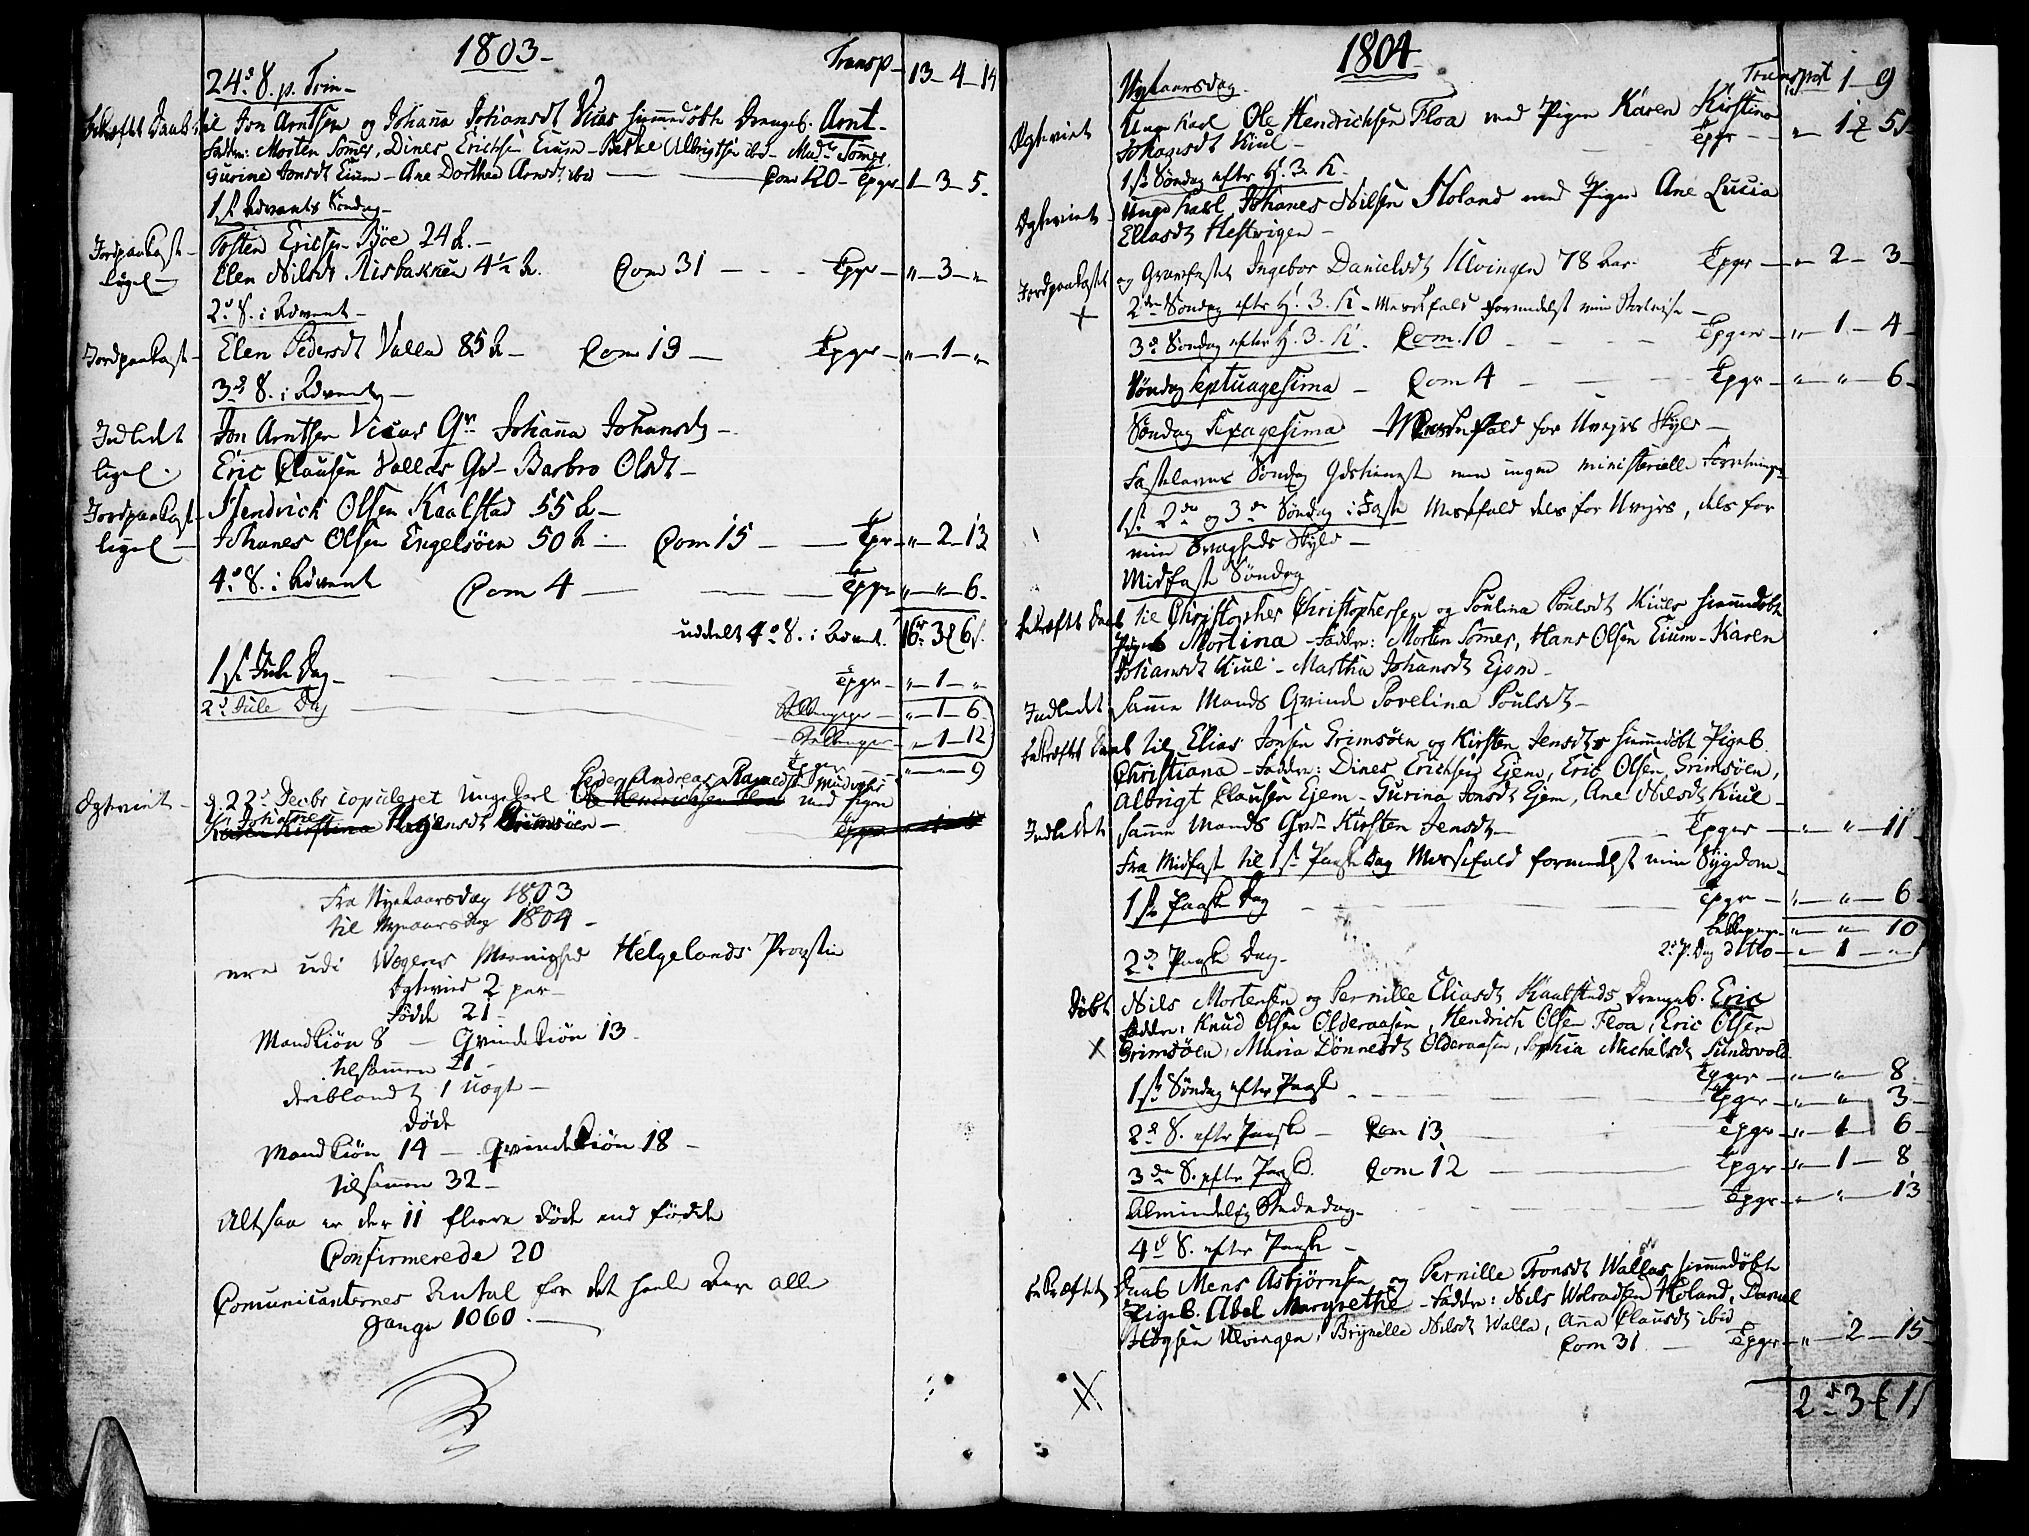 1803
Transp 13 - 4 - 14
24de S. p. Trin
bekræftet Daab til Jon Arntsen og Johanna Johansdt Vicas hiemmedøbte Drengeb. Arnt
Faddere: Morten Somes, Dines Erichsen Eium - Albrigtsen ibd - Mad. Somes
Gurine Jonsdt Eium - Ane Dorthea Arnsdt ibd Com 120 - Tpgr 1 - 3 - 5
1ste Advents Søndag
Jordpaakast Tosten Ericsen Böe 24 A.
ligel Elen Nilsdt Risbakken 4 1/2 A. Com 31 - Tpgr " - 3 - "
2d S. i Advent
Jordpaakast Elen Pedersdt Valla 85 A Com 19 Tpgr " - 1 - "
3d S. i Advent
Indledet Jon Arntsen Vicas Qv. Johanna Johansdt
ligel Eric Clausen Vallas Qv - Barbro Olsdt
Jordpaakast Hendrich Olsen Kaalstad 55 A
ligel Johanes Olsen Engelsöen 50 A Com 15 Tpgr " - 2 - 13
4d S. i Advent Com 4 Tpgr " - " - 6
uddelt 4d S. i Advent. 16 3 6
1ste Jule Dag Tpgr " - 1 - "
2d Jule Dag Tellepenge " - 1 - 6
" - 1 - 12
Tpgr " - " - 9
Peder Andreas
Ægteviet d. 22d Decbr copuleret Unge Karl Ole Hendrichsen Floa med Pigen
Johanne
Karen Kirstina Hagensdt Grimsöen Tpgr
Fra Nytaarsdag 1803
til Nytaarsdag 1804
ere udi Wegens Menighed Helgelands Provstie
Ægtevied 2 par
Födde 21
Mandkiön 8 - Qvindekiön 13
tilsammen 21
deriblandt 1 uægt
Döde
Mandkiön 14 - Qvindekiön 18
tilsammen 32
Altsaa er der 11 flere döde end födde
Confirmerede 20
Comunicanternes Antal for det heele Aar alle
gange 1060
1804
Transport 1 - 9
Nytaarsdag
Ægteviet Unge Karl Ole Hendrichsen Floa med Pigen Karen Kirstina
Johansdt Kiul Tpgr " - 1 - 5
1ste Söndag efter H. 3. K.
Ægteviet Unge Karl Johanes Nilsen Holand med Pigen Ane Lucia
Eliasdt Hestvigen
Jordpaakastet og Gravfæstet Ingebor Danielsdt Ulvingen 78 Aar Tpgr " - 2 - 3
2den Söndag efter H. 3. K - Messefald formedelst min
3d Söndag efter H. 3. K. Com. 10 Tpgr " - 1 - 4
Söndag Septuagesima Com 4 Tpgr " - " - 6
Söndag Sexagesima Messefald for Uvejrs Skyld
Fastelavns Söndag Gdstienest men ingen ministerielle Forretninger
1ste 2den og 3den Söndag i Faste Messefald dels for Uvejrs, dels for
min Svagheds Skyld
Midfaste Söndag
bekræftet Daab til Christopher Christophersen og Poulina Poulsdt Kiuls hiemmedøbte
Pigeb Mortina - Faddere: Morten Somes, Hans Olsen Eium - Karen
Johansdt Kiul - Martha Johansdt Ejem
Indledet samme Mands Qvinde Povelina Poulsdt
bekræftet Daab til Elias Jonsen Grimsöen og Kirsten Jensdts hiemmedøbt Pigeb.
Christiana - Faddere: Dines Erichsen Ejem, Eric Olsen Grimsöen,
Albrigt Clausen Ejem - Gurina Jonsdt Ejem, Ane Nilsdt Kiul
Indledet samme Mands Qvd. Kirsten Jensdt Tpgr " - " - 11
Fra Midfaste til 1ste Paaske Dag Messefald formedelst min Sygdom
1ste Paaske Dag Tpgr " - " - 6
Tellepenge " - " - 10
2d Paaske Dag 2d P. Dag ditto " - 1 - "
Döbt Nils Mortensen og Pernille Eliasdt Kaalstads Drengeb. Eric
Faddere: Knud Olsen Olderaasen, Hendrich Olsen Floa, Eric Olsen
Grimsöen, Maria Dönnesdt Olderaasen, Sophia Michelsdt Sundsvold
Tpgr " - " - 8
1ste Söndag efter Paaske Tpgr " - " - 3
2d S. efter Paaske Com 13 Tpgr " - 1 - 6
3de S. efter Paaske Com 12 Tpgr " - 1 - 8
Almindelig Bededag Tpgr " - " - 13
4d S. efter Paaske
bekræftet Daab Mens Asbjörnsen og Pernille Tronsdt Wallas hiemmedöbte
Pigeb. Abel Margrethe - Faddere: Nils Wolradsen Holand, Daniel
Ulvingen, Brynille Nilsdt Walla, Ana Clausdt ibid
Com 31 Tpgr " - 2 - 15
2 3 11